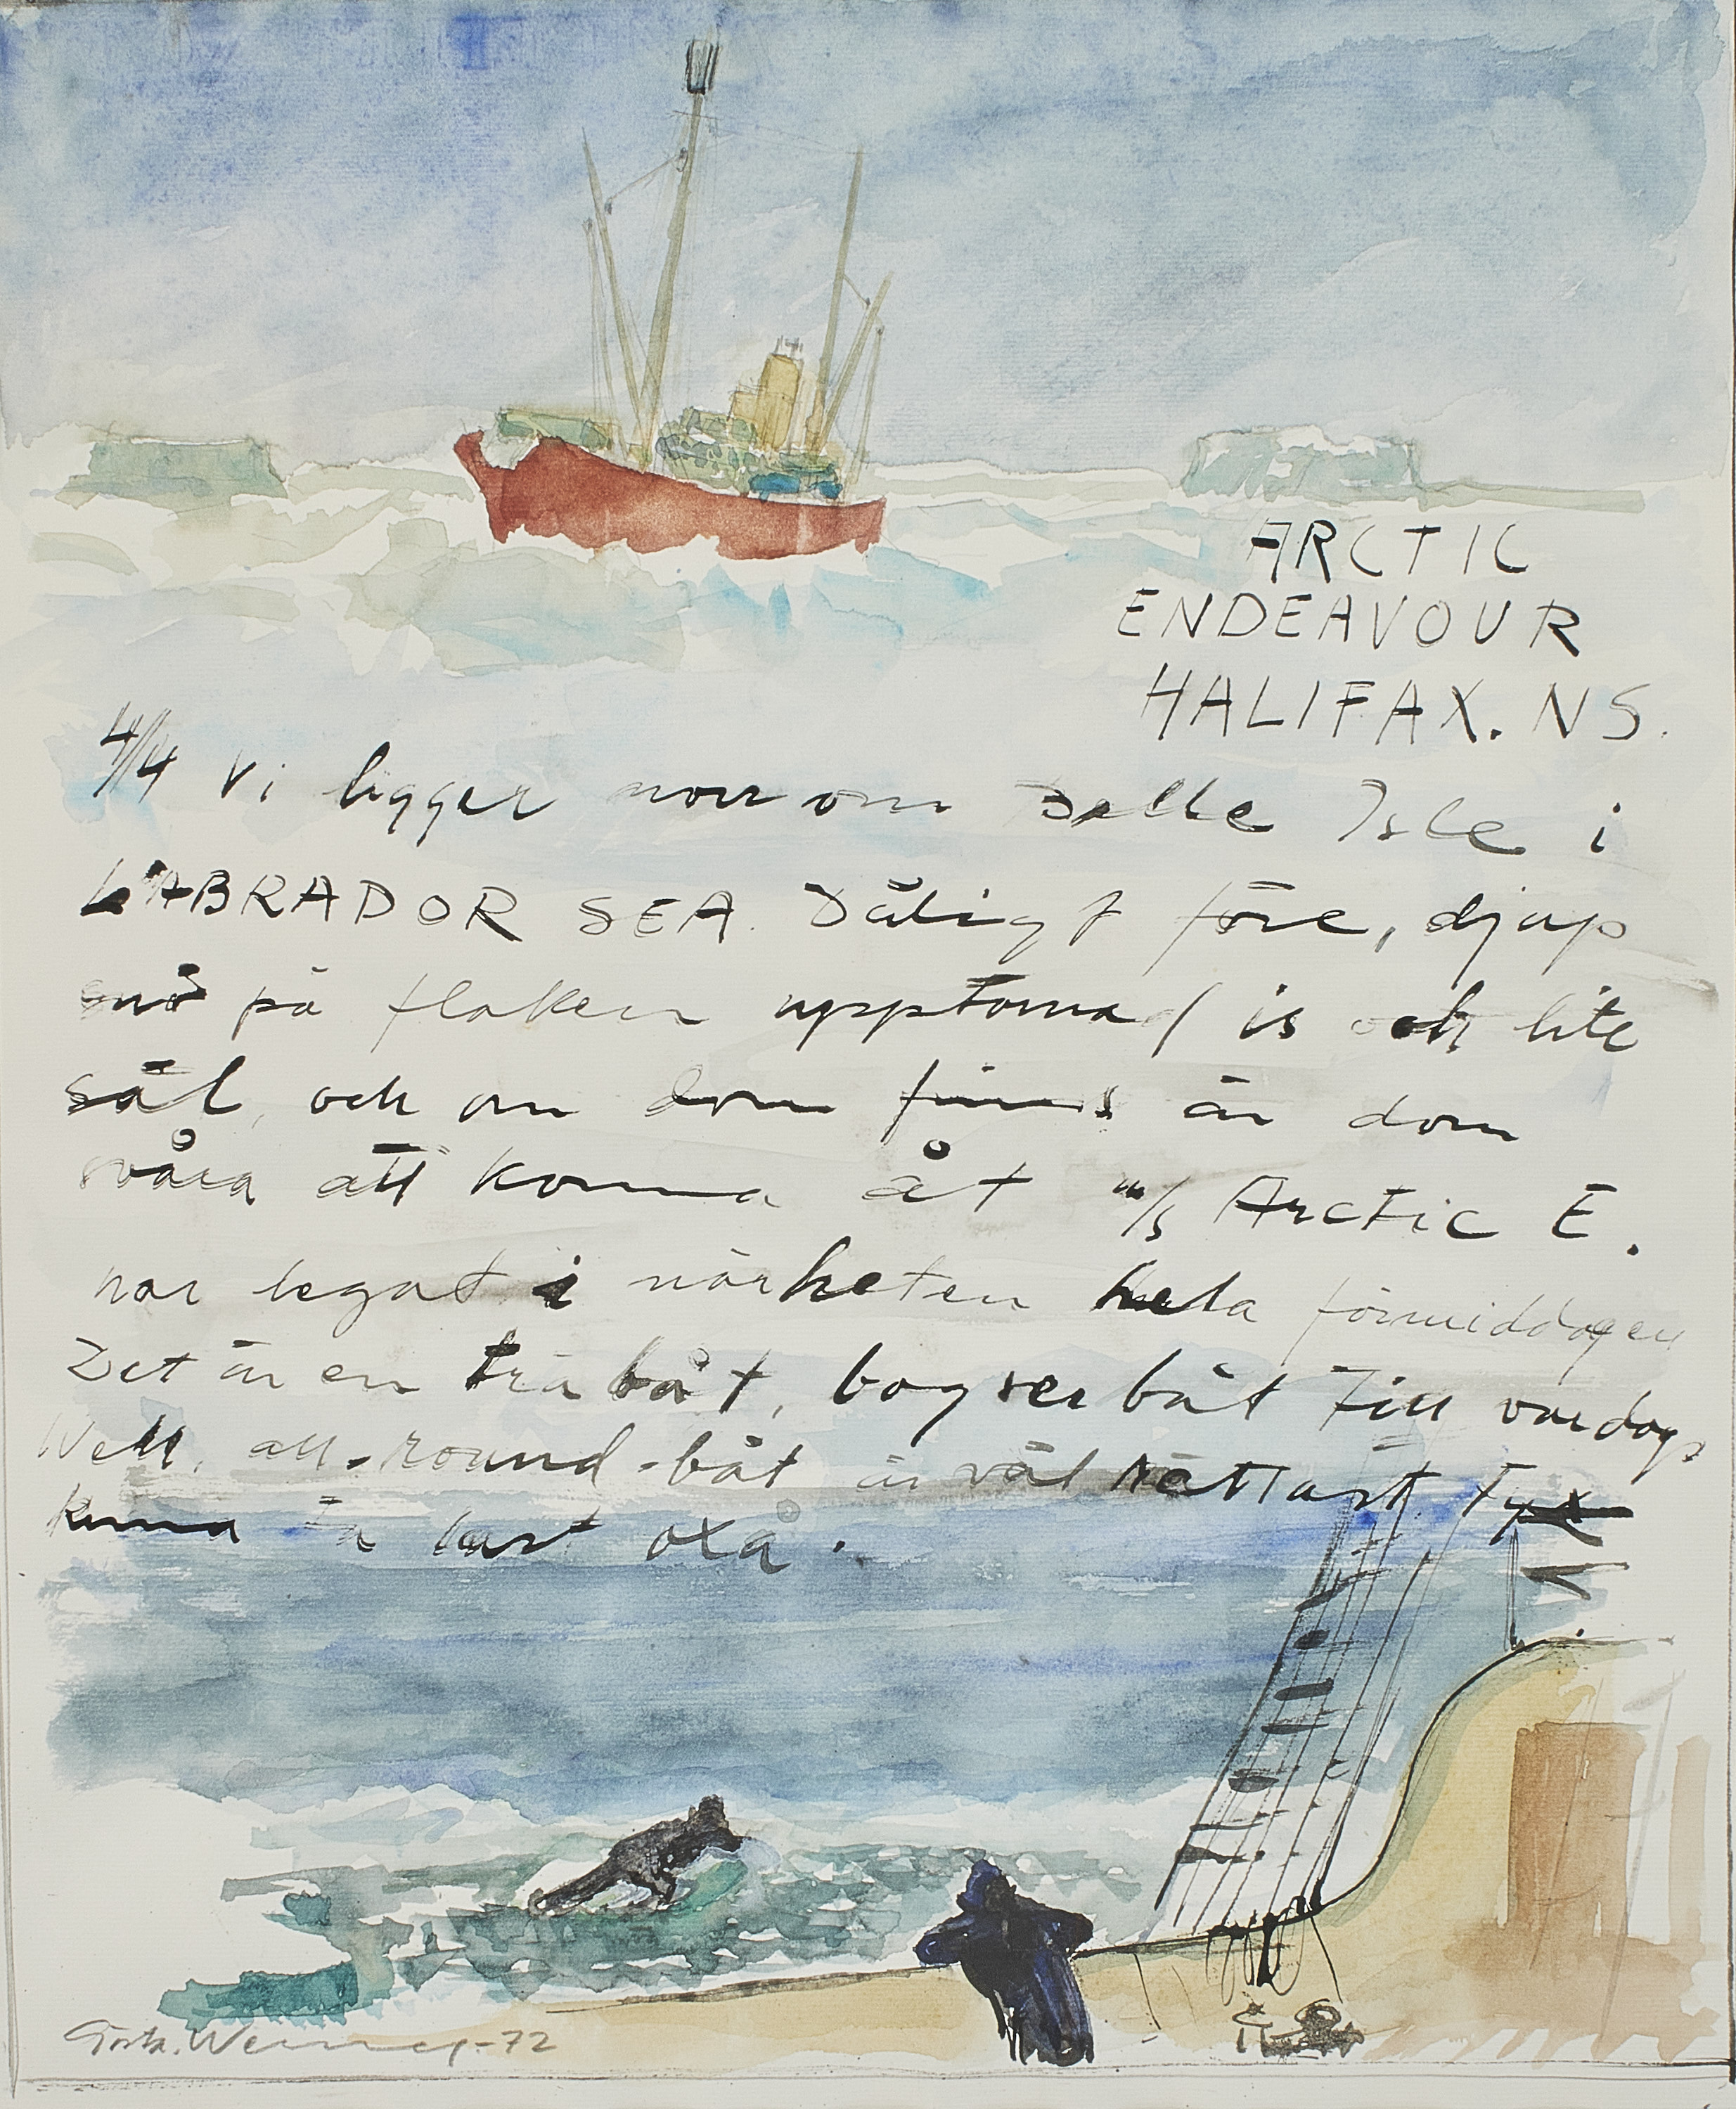 ARCTIC
ENDEAVOUR
HALIFAX. NS.
4/4 Vi ligger norr om Belle Isle i
LABRADOR SEA. Dåligt före, djup
snö på flaken upptorna/ is och lite
säl, och om dom finns är dom
svåra att komma åt M/S Arctic E.
har legat i närheten hela förmiddagen
Det är en träbåt, bogserbåt till vardags
Well, all-round-båt är väl rättast
kunna ta last oxå.
Weimer-72